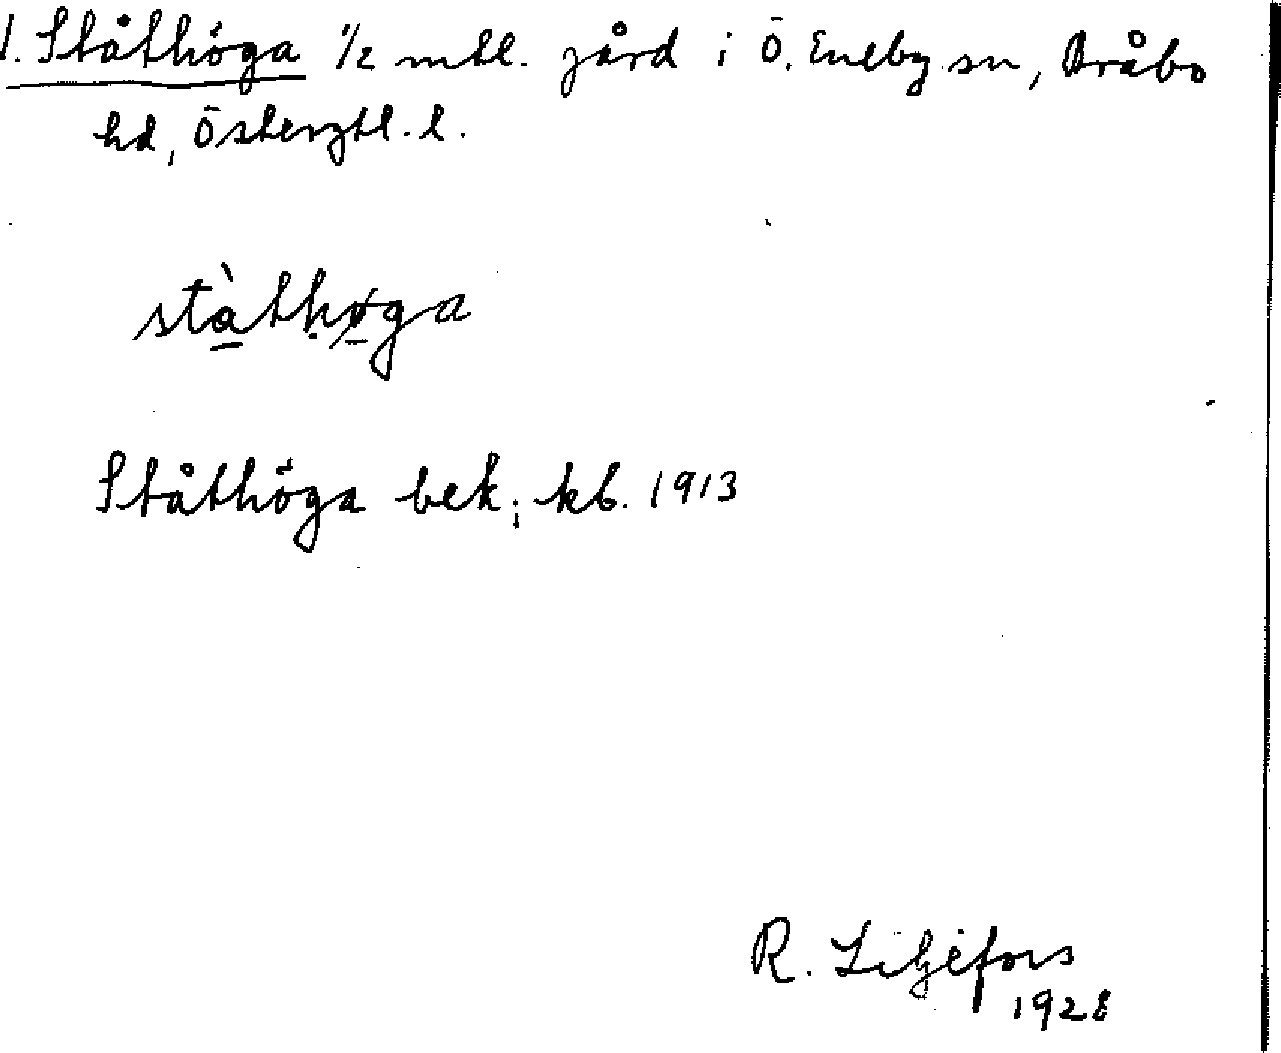 1. Ståthöga 1/2 mtl. gård i Ö. Eneby sn, Bråbo
hd, Östergtl. l.
stàthøga
Ståthöga bek; kb. 1913
R. Liljefors
1928